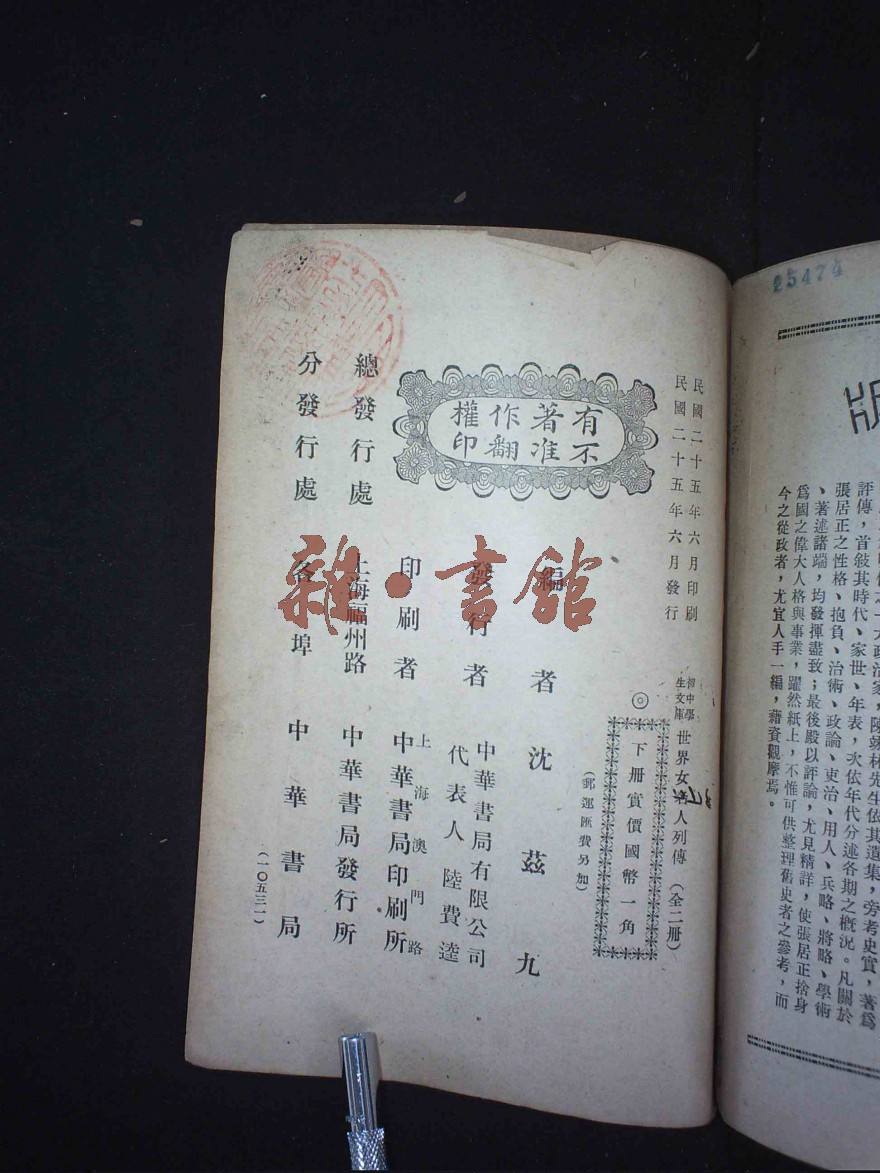 民國二十五年六月印刷
民國二十五年六月發行
初中學
生文庫
世界女名人列傳(全二冊)
◎下册實價國幣一角
(郵運匯費另加)
編者沈茲九
發行者
中華書局有限公司
代表人陸費逵
印刷者
上海澳門路
中華書局印刷所
有著作權
不准翻印
總發行處
上海福州路
中華書局發行所
分發行處
各埠中華書局
(一〇五三一)
雜·書館
25474
版
評傳,首敍其時代、家世、年表,次依年代分述各期之概況。凡關於
張居正之性格、抱負、治術、政論、吏治、用人、兵略、將略、學術
、著述諸端,均發揮盡致;最後殿以評論,尤見精詳,使張居正捨身
爲國之偉大人格與事業,躍然紙上,不惟可供整理舊史者之參考,而
今之從政者,尤宜人手一編,藉資觀摩焉。